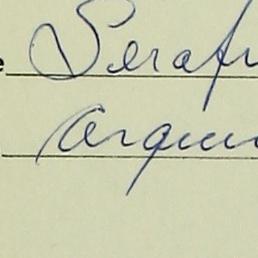 e Seraf
Arqui